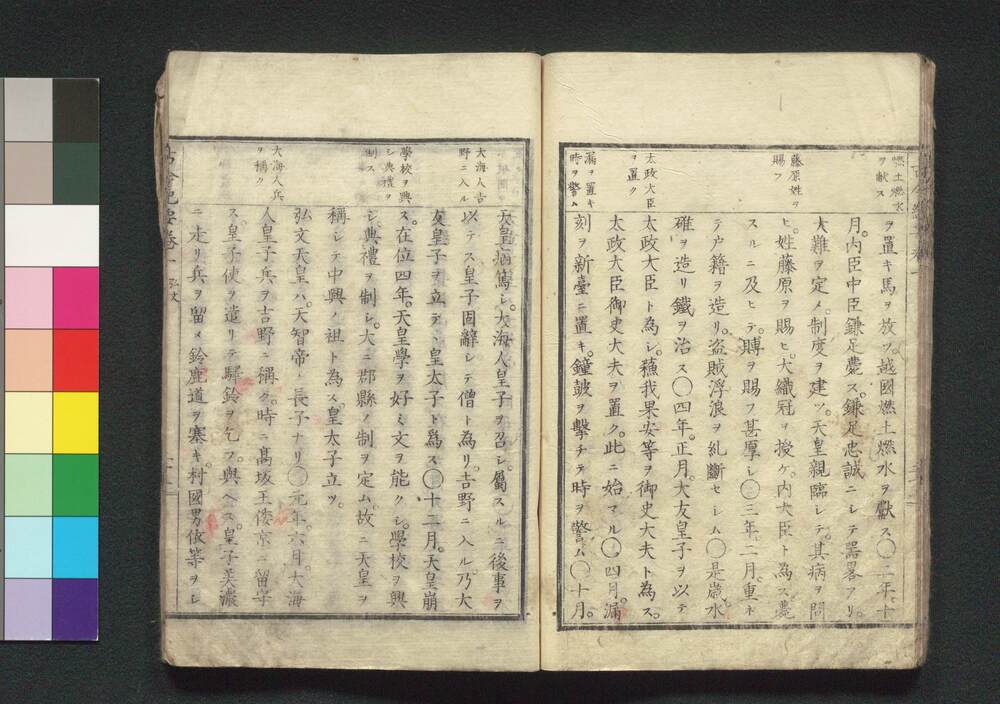 燃土燃水
ヲ献ス
藤原姓ヲ
賜フ
太政大臣
ヲ置ク
漏ヲ置キ
時ヲ警ム
ヲ置キ馬ヲ放ツ。越國燃土燃水ヲ獻ス〇二年。十
月。内臣中臣鎌足薨ス。鎌足忠誠ニシテ器畧アリ。
大難ヲ定メ。制度ヲ建ツ。天皇親臨シテ。其病ヲ問
ヒ。姓藤原ヲ賜ヒ。大織冠ヲ授ケ。内大臣ト為ス。薨
スルニ及ヒテ。賻ヲ賜フ甚厚シ〇三年。二月。重ネ
テ户籍ヲ造リ。盗賊浮浪ヲ糺斷セシム〇是歳。水
碓ヲ造リ鐵ヲ治ス〇四年。正月。大友皇子ヲ以テ
太政大臣ト為シ。蘓我果安等ヲ御史大夫ト為ス。
太政大臣御史大夫ヲ置ク。此ニ始マル〇四月。漏
刻ヲ新臺ニ置キ。鐘鼓ヲ擊チテ時ヲ警ム〇十月。
大海人吉
野ニ入ル
學校ヲ興
シ典禮ヲ
制ス
大海人兵
ヲ稱ク
天皇病篤シ。大海人皇子ヲ召シ。屬スルニ後事ヲ
以テス皇子固辭シテ僧ト為リ。吉野ニ入ル。乃大
友皇子ヲ立テヽ皇太子ト為ス〇十二月。天皇崩
ス。在位四年。天皇學ヲ好ミ文ヲ能クシ。學校ヲ興
シ。典禮ヲ制シ。大ニ郡縣ノ制ヲ定ム。故ニ天皇ヲ
稱シテ中興ノ祖ト為ス。皇太子立ツ。
弘文天皇ハ。天智帝ノ長子ナリ〇元年。六月。大海
人皇子兵ヲ吉野ニ稱ク。時ニ髙坂王倭京ニ留守
ス。皇子使ヲ遣リテ驛鈴ヲ乞フ。與ヘス。皇子美濃
ニ走リ兵ヲ留メ鈴鹿道ヲ塞キ。村國男依等ヲシ